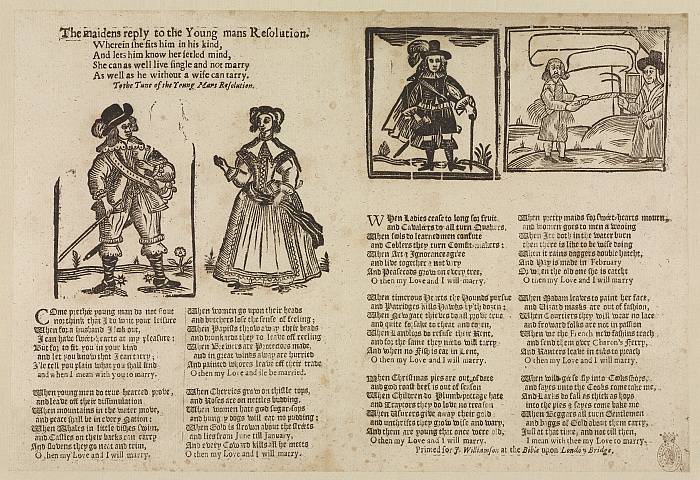 The maidens reply to the Young mans Resolution.
Wherein she fits him in his kind,
And lets him know her setled mind,
She can as well live single and not marry
As well as he without a wife can tarry.
To the Tune of the Young Mans Resolution.
COme prethee young man do not flout
not think that I do wait your leisure
When for a husband I look out,
I can have sweet-hearts at my pleasure:
But for to fit you in your kind
and let you know that I can tarry;
I'le tell you plain what you shall find
and when I mean with you to marry.
When young men do true-hearted prove,
and leave off their dissimulation
When mountains in the water move,
and peace shall be in every Nation:
When Whales in little ditches swim,
and Castles on their backs can carry
And Ravens they go neat and trim,
O then my Love and I will marry.
When women go upon their heads
and butchers lose the sense of feeling;
When Papists throw away their beads
and drunkards they to leave off reeling
When Brewers are Princes made
and in great winds away are hurried
And painted whores leave off their trade
O then my Love and ile be married.
When Cherries grow on thistle tops,
and Roses are on nettles budding,
When women hate good sugar-sops
and hungry dogs will eat no pudding;
When Gold is thrown about the streets
and lies from June till January,
And every Coward kills all he meets
O then my Love and I will marry.
WHen Ladies cease to long for fruit
and Cavaliers do all turn Quakers,
When fools do learned men confute
and Coblers they turn Comfit-makers:
When Art & Ignorance agree
and live together & not vary
And Peascods grow on every tree,
O then my Love and I will marry.
When timerous Hearts the Hounds pursue
and Patridges kills Hawks by
When Newgate thieves do all prove true
and quite forsake to cheat and
When Landlords do refuse their Rent,
and for the same they never will
And when no Fish is eat in Lent,
O then my Love and I will marry.
When Christmas pies are out of date
and good roast beef is out of fashion
When Children do Plumb-pottage hate
and Traytors they do love the Nation
When Usurers give away their gold
and unthrifts they grow wise and wary,
And them are young that once were old,
O then my Love and I will marry.
When pretty maids for sweet-hearts mourn,
and women goes to men a wooing
When Ice doth in the water burn
then there is like to be wise doing
When it rains daggers double hatcht,
And May is made in February
Or when the old one she is catcht
O then my Love and I will marry.
When Madam leaves to paint her face,
and Vizard masks are out of fashion,
When Courtiers they will wear no lace
and froward folks are not in passion
When we the French new fashions teach
and send them over Charon's Ferry,
And Ranters leave in tubs to preach
O then my Love and I will marry.
When wild-geese fly into Cooks shops,
and fawns unto the Cooks come
And Larks do fall as thick as hops
into the pies & fayes come bake me
When Beggars all turn Gentlemen
and baggs of Gold about them carry,
Just at that time, and not till then,
I mean with thee my Love to marry.
Printed for J. Williamson at the Bible upon London Bridge.